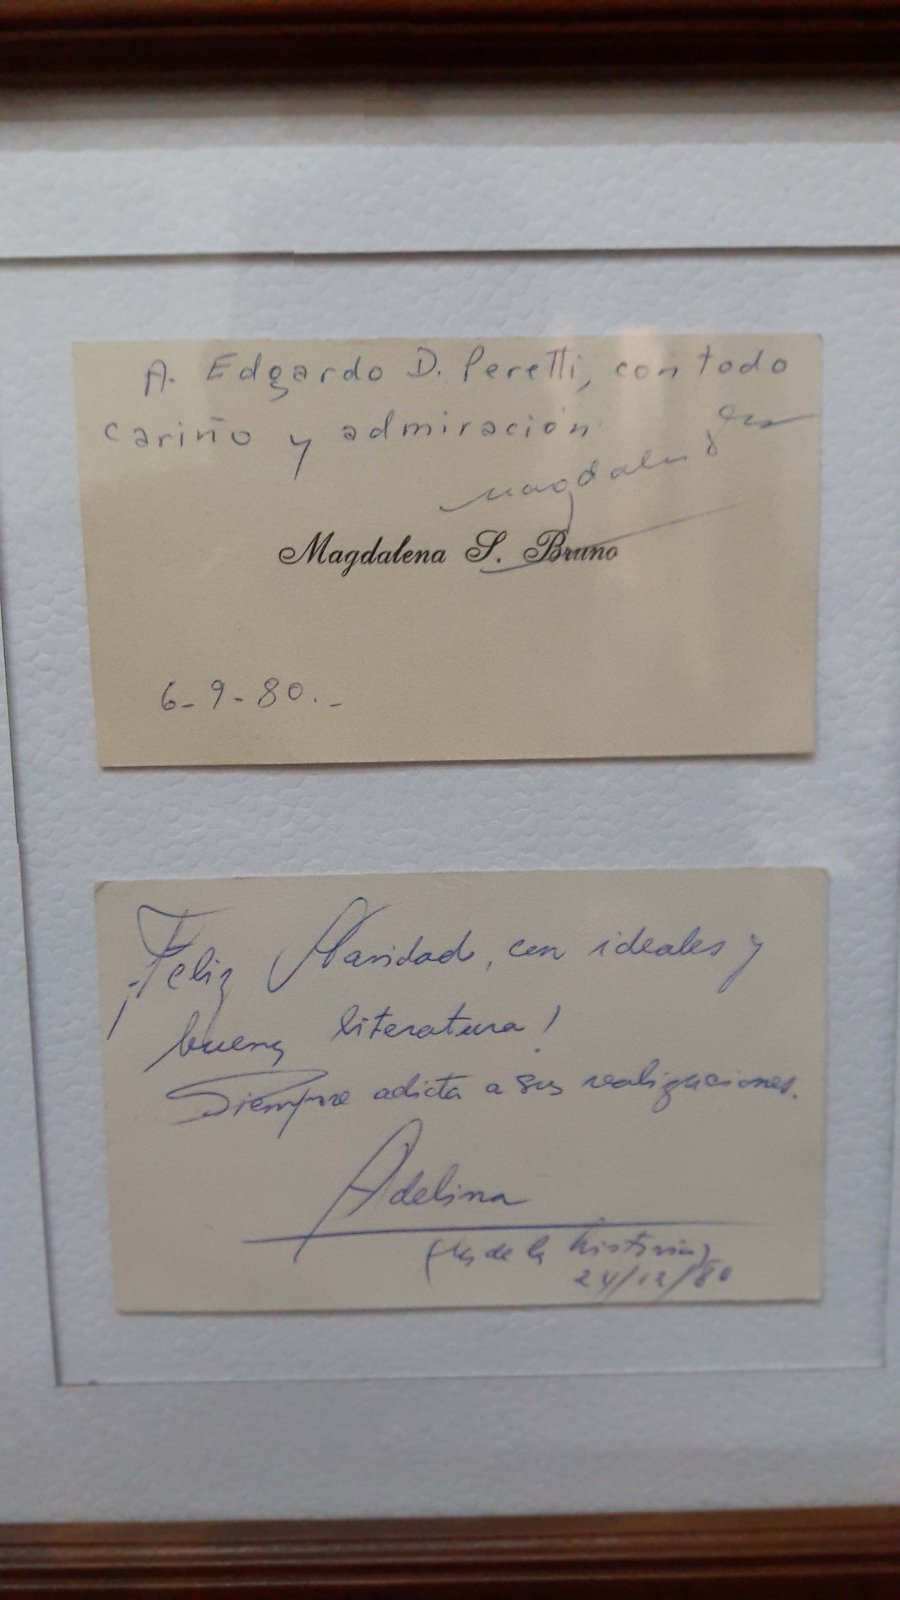 A. Edgardo D. Peretti, con todo
cariño y admiración
Magdalena
Magdalena S. Bruno
6-9-80.-
¡Feliz Navidad, con ideales y
buena literatura!
Siempre adicta a sus realizaciones.
Adelina
(la de la historia)
24/12/80